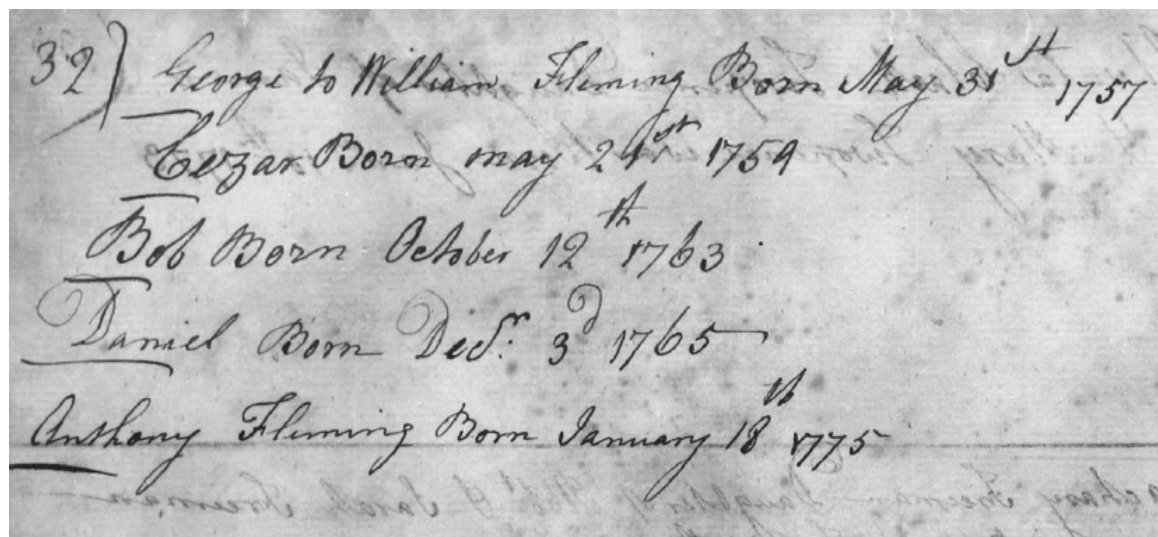 32) George to William Fleming Born May 31st 1757
Cezar Born may 21st 1759
Bob Born October 12th 1763
Daniel Born Decr. 3d 1765
Anthony Fleming Born January 18th 1775